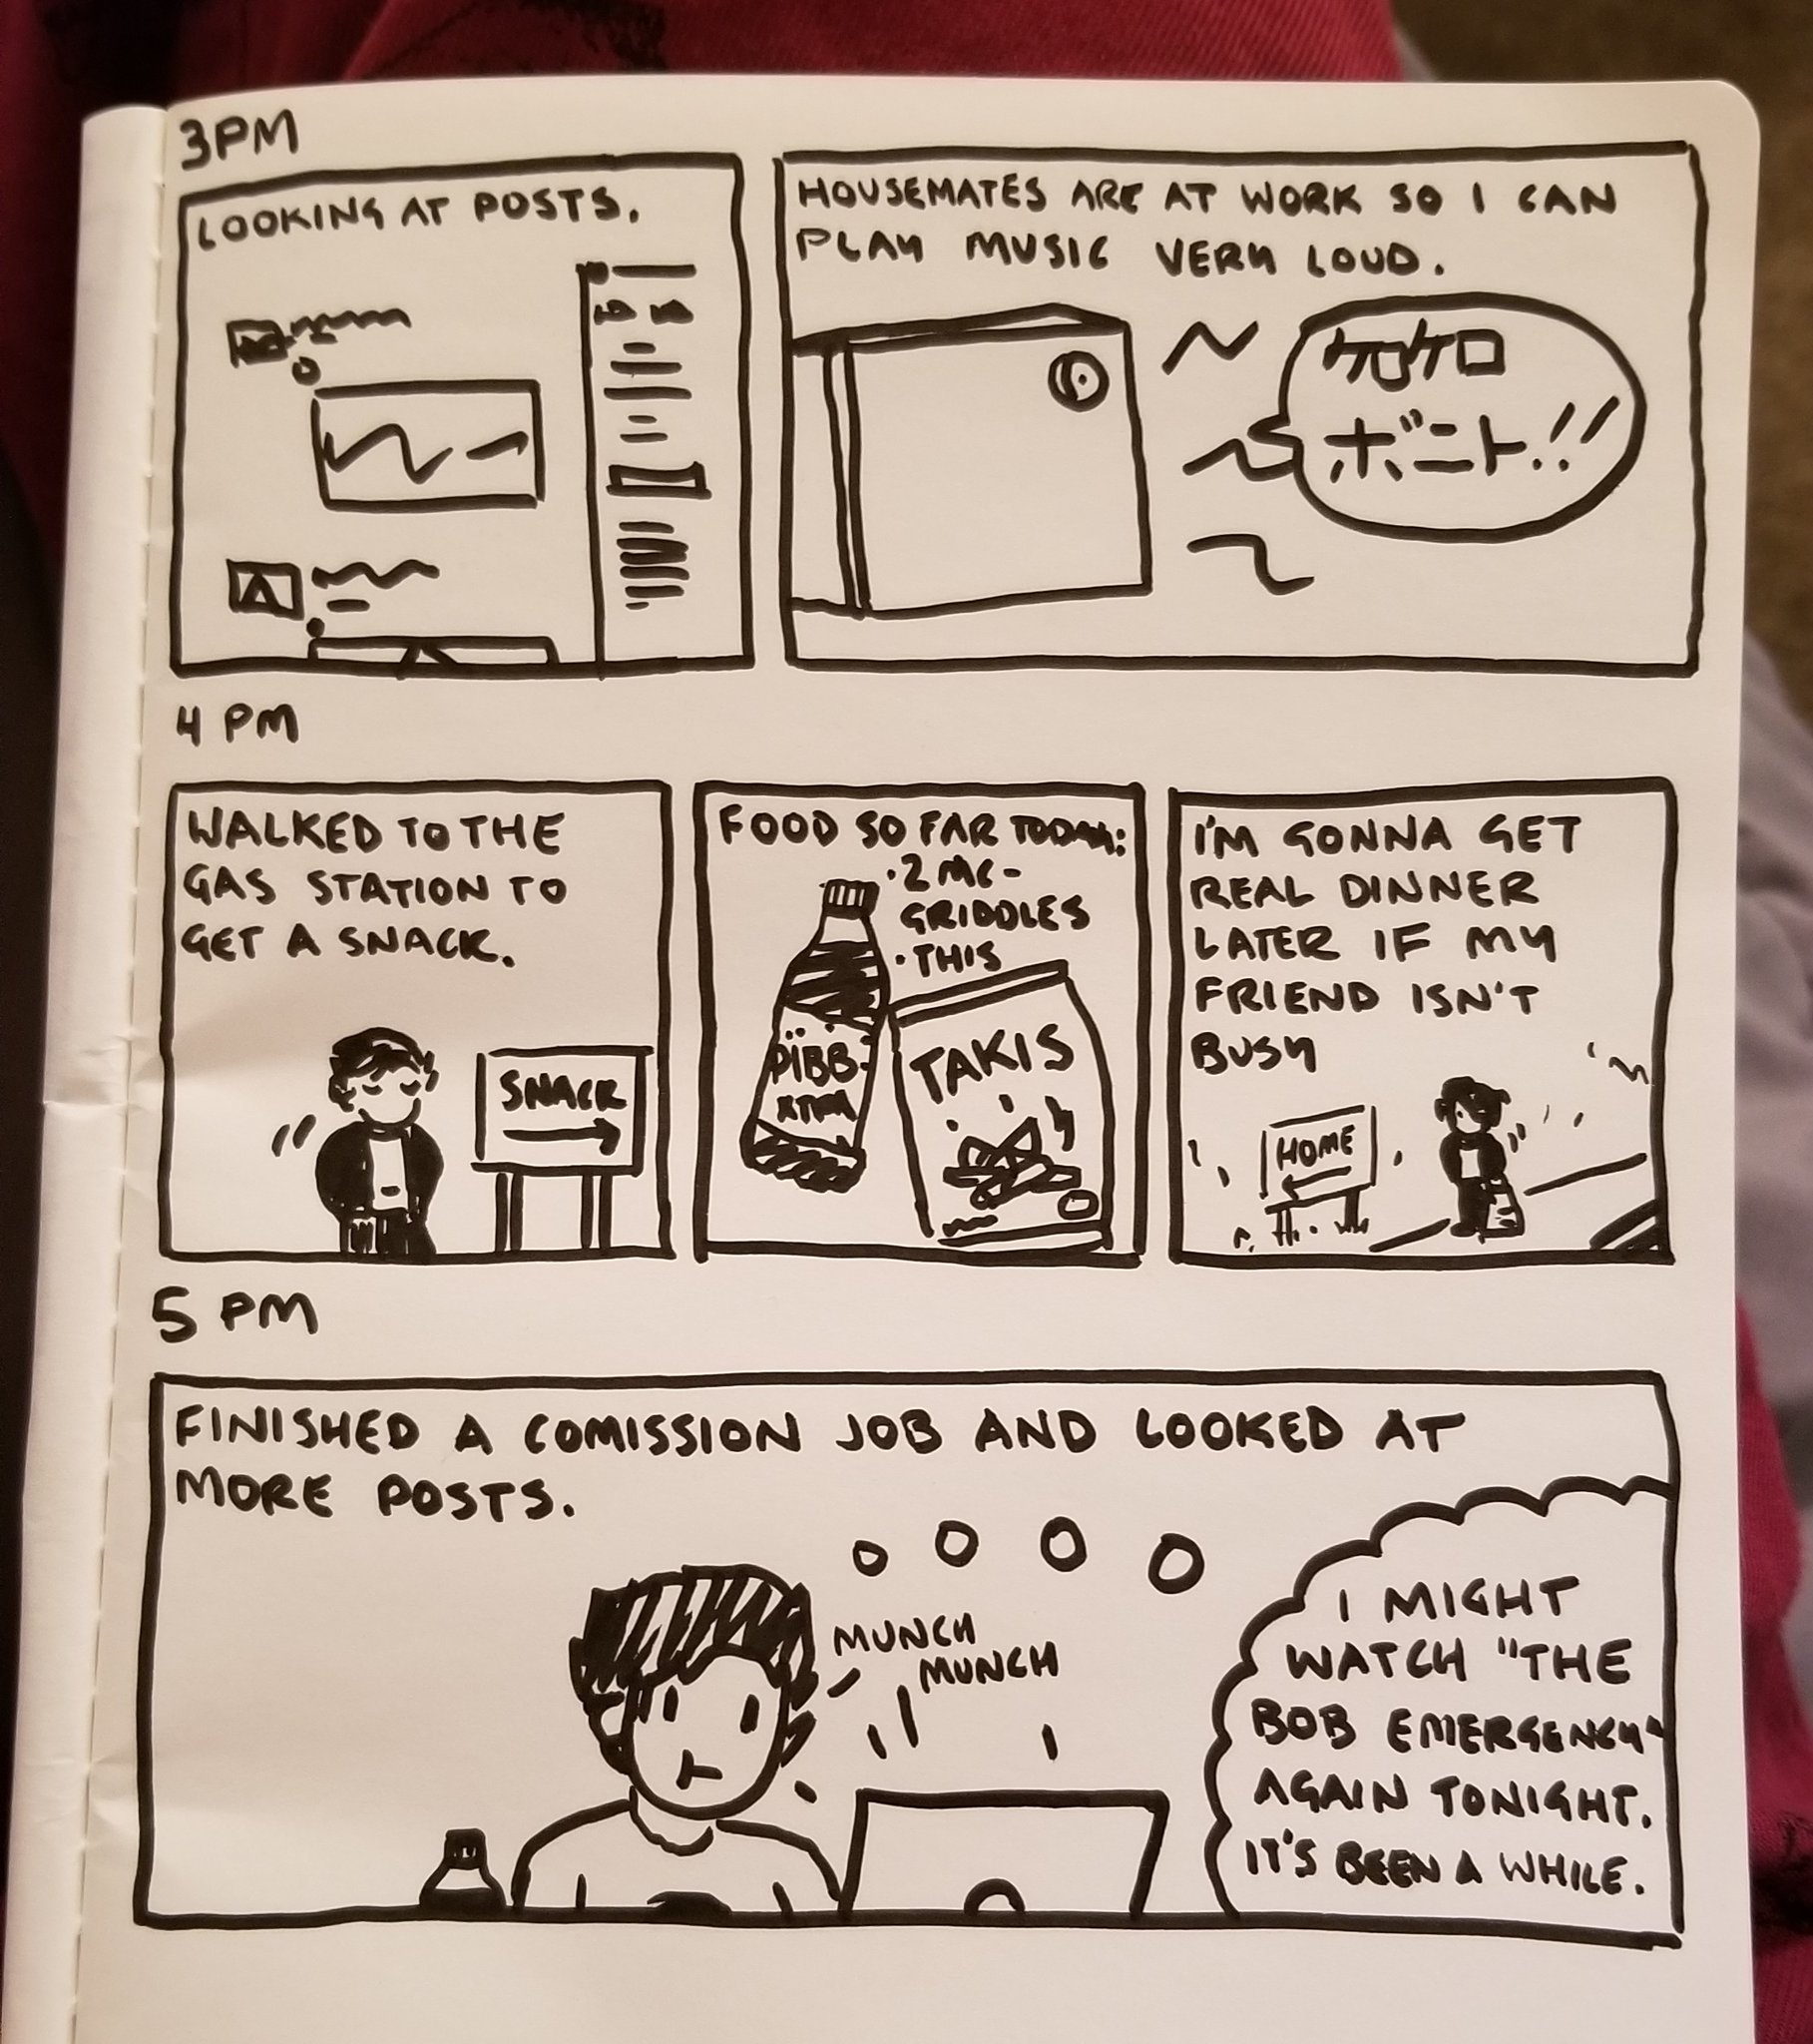 3PM
LOOKING AT POSTS.
HOUSEMATES ARE AT WORK SO I CAN
PLAY MUSIC VERY LOUD.
ケロケロ
ボニト!!
4 PM
WALKED TO THE
GAS STATION TO
GET A SNACK.
SNACK
FOOD SO FAR TODAY:
·2 MC-
GRIDDLES
·THIS
PIBB
XTRA
TAKIS
I'M GONNA GET
REAL DINNER
LATER IF MY
FRIEND ISN'T
BUSY
HOME
5 PM
FINISHED A COMISSION JOB AND LOOKED AT
MORE POSTS.
MUNCH
MUNCH
I MIGHT
WATCH "THE
BOB EMERGENCY"
AGAIN TONIGHT.
IT'S BEEN A WHILE.